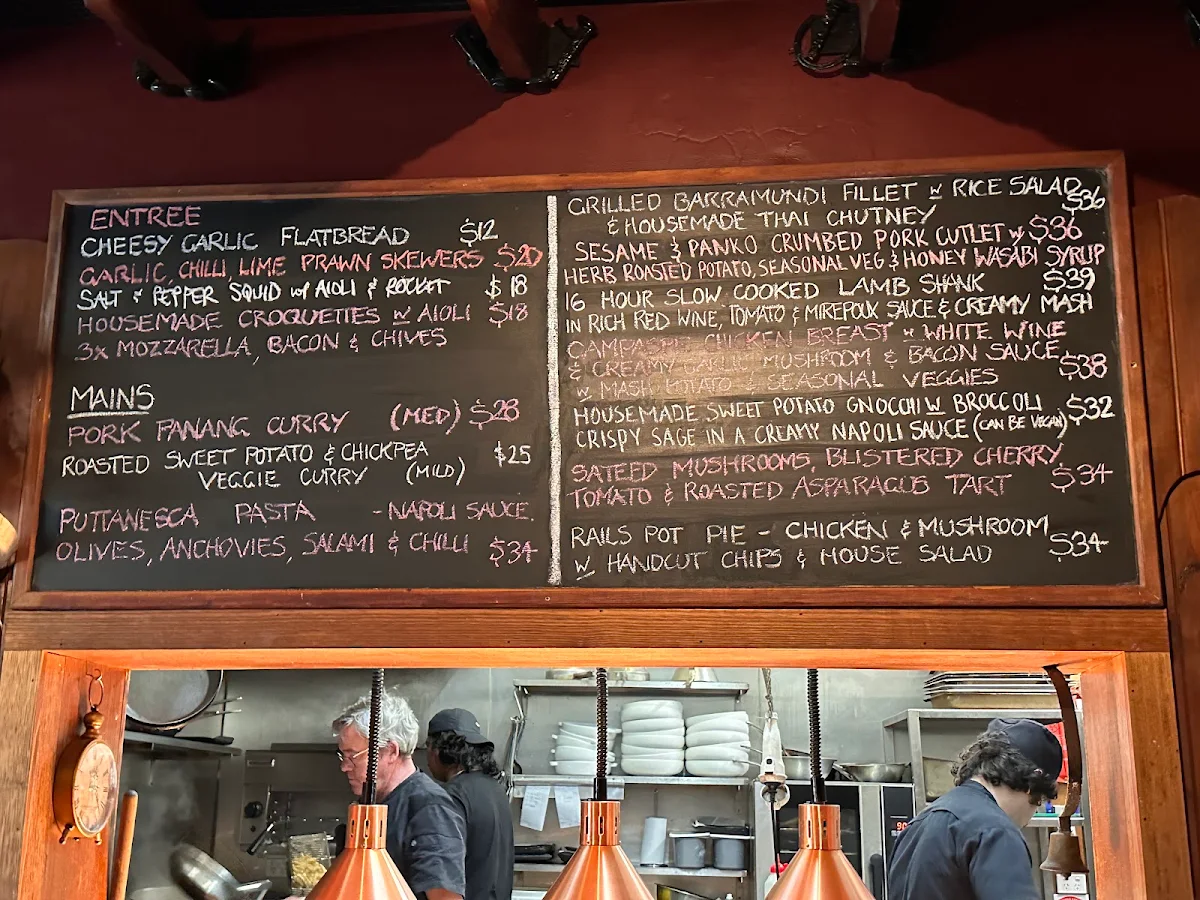 ENTREE
CHEESY GARLIC FLATBREAD $12
GARLIC, CHILLI, LIME PRAWN SKEWERS $20
SALT & PEPPER SQUID w/ AIOLI & ROCKET $18
HOUSEMADE CROQUETTES w AIOLI $18
3x MOZZARELLA, BACON & CHIVES
MAINS
PORK PANANG CURRY (MED) $28
ROASTED SWEET POTATO & CHICKPEA $25
VEGGIE CURRY (MILD)
PUTTANESCA PASTA - NAPOLI SAUCE.
OLIVES, ANCHOVIES, SALAMI & CHILLI $34
GRILLED BARRAMUNDI FILLET w RICE SALAD $36
& HOUSEMADE THAI CHUTNEY
SESAME & PANKO CRUMBED PORK CUTLET w $36
HERB ROASTED POTATO, SEASONAL VEG & HONEY WASABI SYRUP
16 HOUR SLOW COOKED LAMB SHANK $39
IN RICH RED WINE, TOMATO & MIREPOUX SAUCE & CREAMY MASH
CHICKEN BREAST w WHITE WINE
& CREAMY GARLIC MUSHROOM & BACON SAUCE $38
w MASH POTATO & SEASONAL VEGGIES
HOUSEMADE SWEET POTATO GNOCCHI w BROCCOLI $32
CRISPY SAGE IN A CREAMY NAPOLI SAUCE (CAN BE VEGAN)
SATEED MUSHROOMS, BLISTERED CHERRY
TOMATO & ROASTED ASPARAGUS TART $34
RAILS POT PIE - CHICKEN & MUSHROOM
w HANDCUT CHIPS & HOUSE SALAD $34